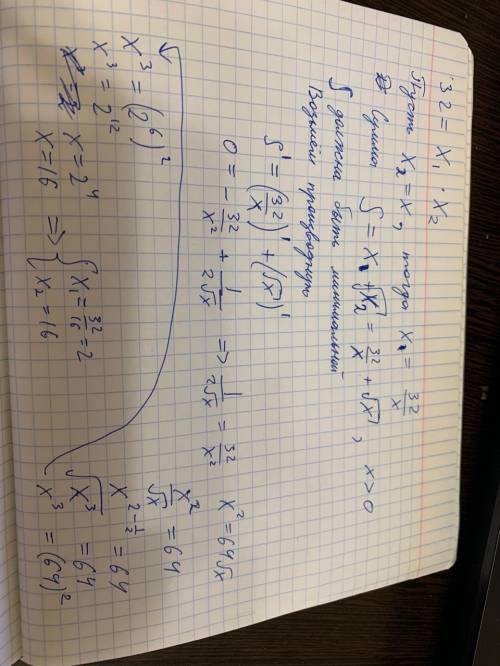 32 = x₁ · x₂
Пусть x₂ = x, тогда x₁ = 32/x
Сумма S = x₁ + √x₂ = 32/x + √x, x > 0
S должна быть минимальной
Возьмем производную
S' = (32/x)' + (√x)'
0 = - 32/x² + 1/2√x => 1/2√x = 32/x²
x² = 64√x
x²/√x = 64
x^(2-1/2) = 64
√x³ = 64
x³ = (64)²
x³ = (2⁶)²
x³ = 2¹²
x = 2⁴
x = 16 => { x₁ = 32/16 = 2
x₂ = 16